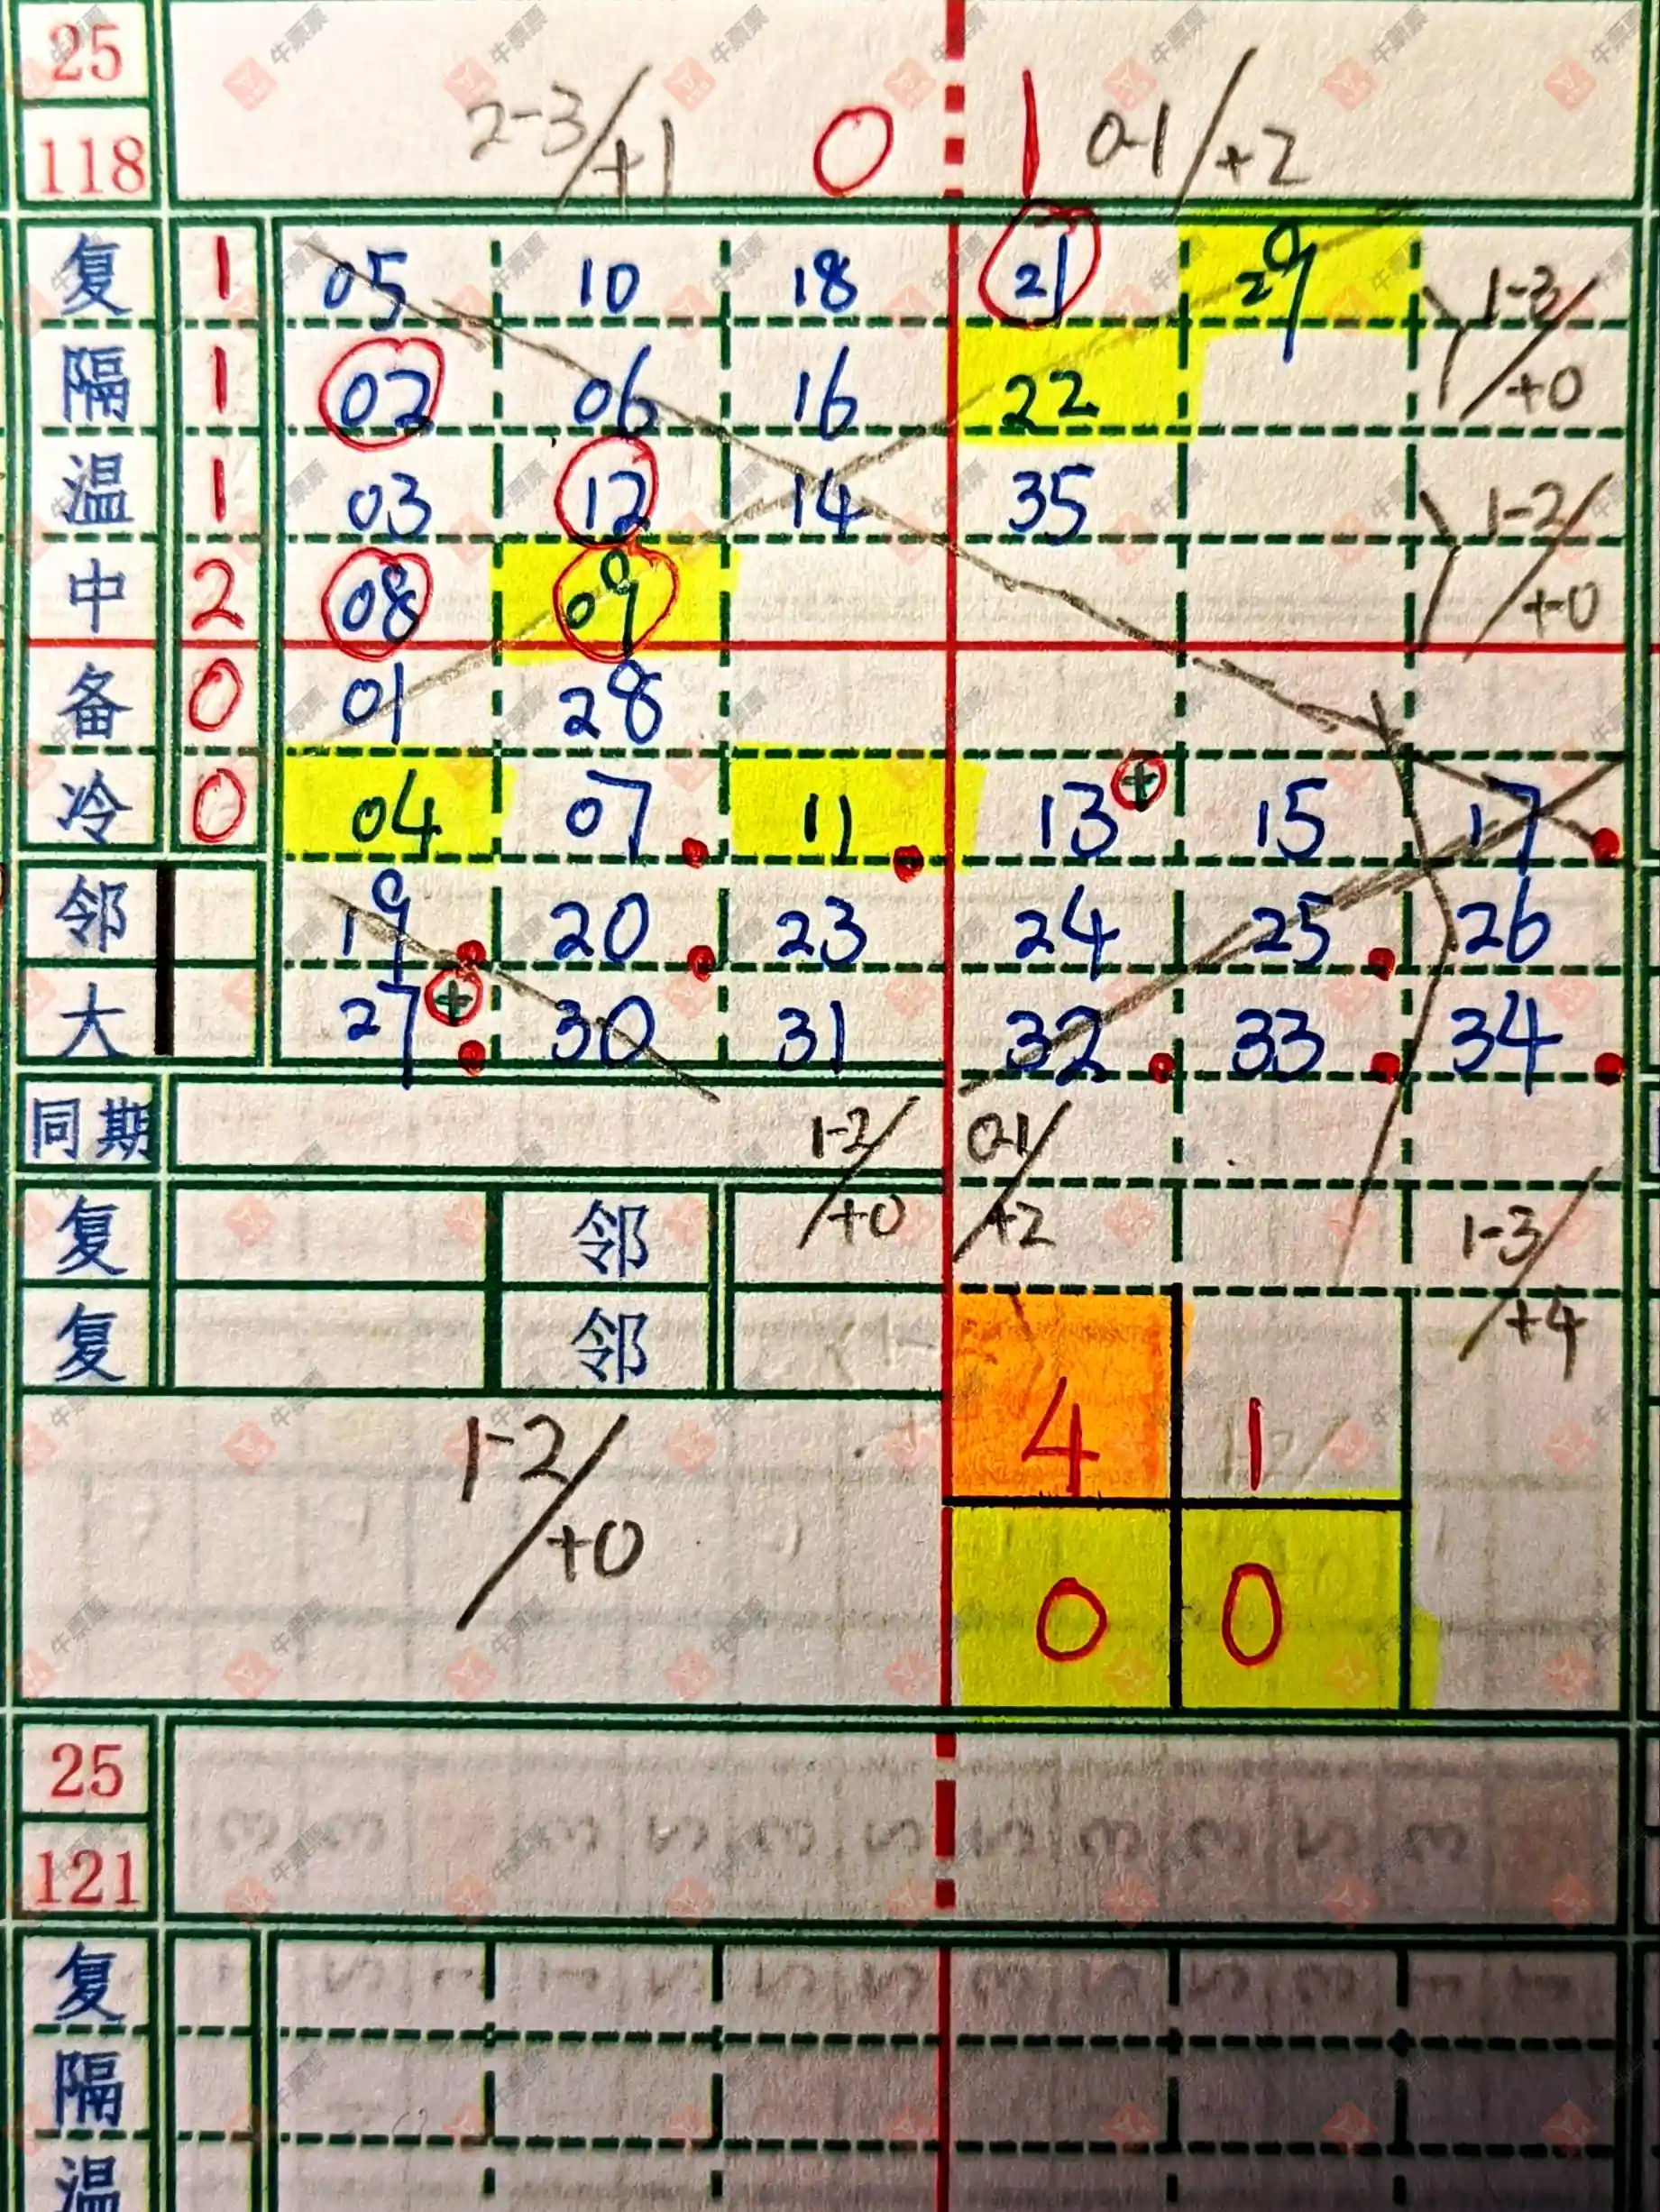 25
118
2-3/+1 0 1 0-1/+2
复 1 05 10 18 21 29
1-3/+0
隔 1 02 06 16 22
温 1 03 12 14 35
1-2/+0
中 2 08 09
备 0 01 28
冷 0 04 07 11 13 + 15 17
邻 19 20 23 24 25 26
大 27 + 30 31 32 33 34
同期 1-2/+0 0-1/+2
复 邻
1-3/+4
复 邻
1-2/+0
4 1
0 0
25
121
复
隔
温
牛票票